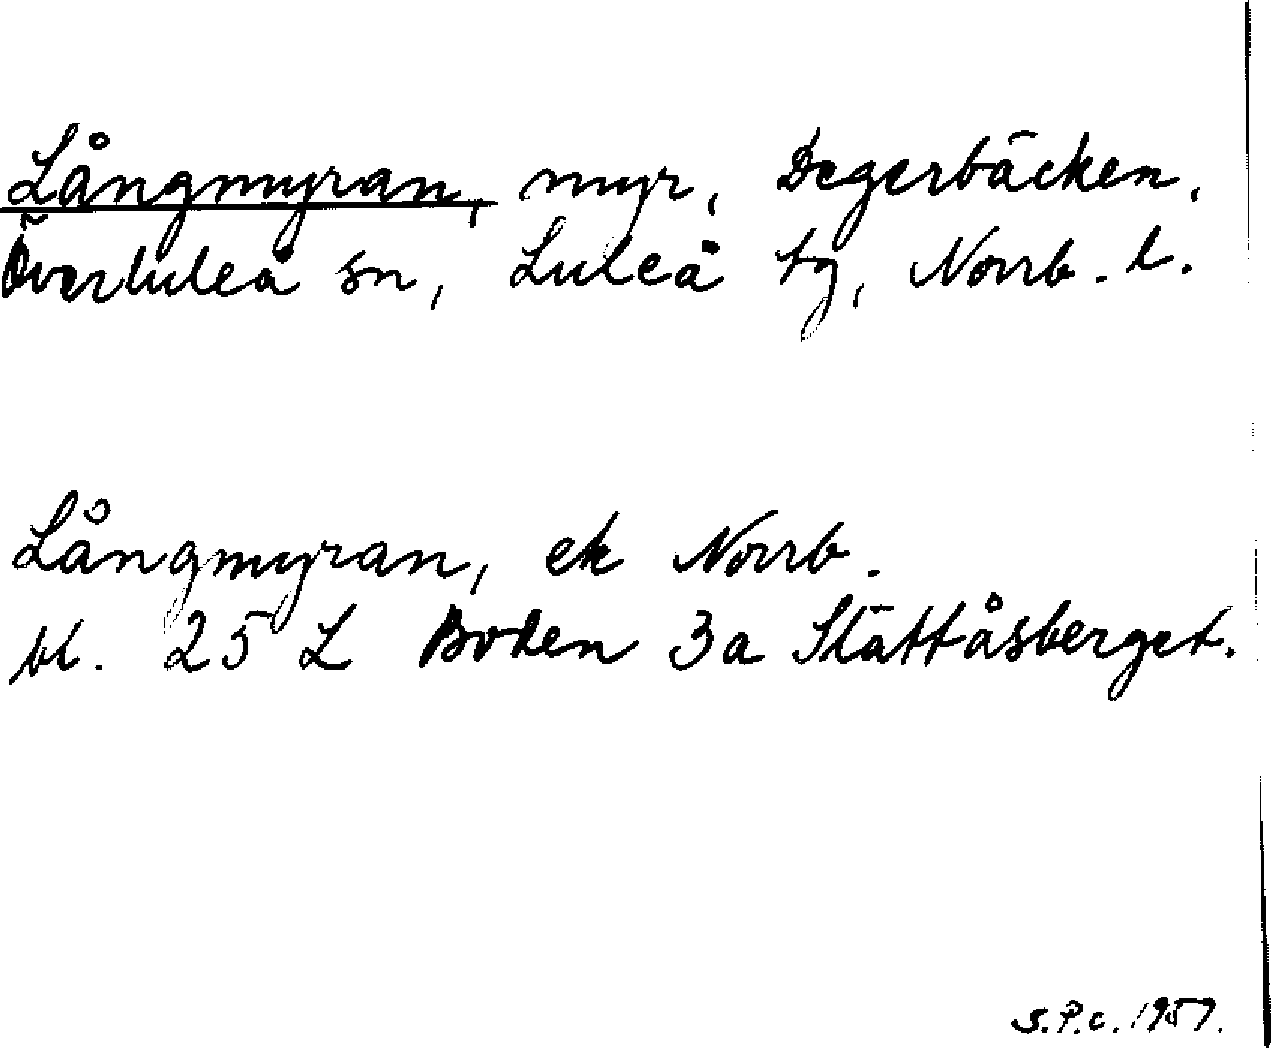 Långmyran, myr, Degerbäcken,
Överluleå sn, Luleå tg, Norrb. l.
Långmyran, ek Norrb.
bl. 25 L Boden 3a Slättåsberget.
S.P.C. 1957.